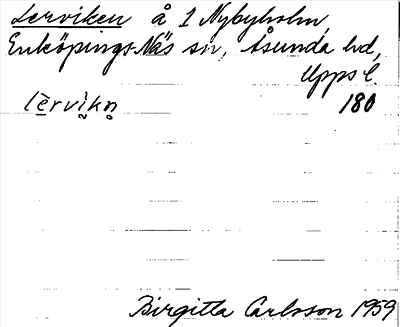 Lerviken å 1 Nybyholm,
Enköpings-Näs sn, Åsunda hd,
Upps l.
lērvìkn̥ 180
Birgitta Carlsson 1959